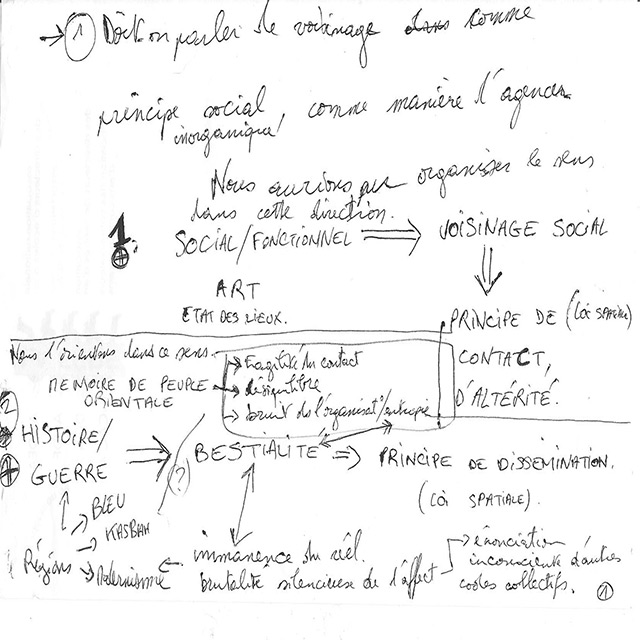 → 1 Doit-on parler de voisinage dans comme
principe social, comme manière d'agencer
inorganique,
Nous aurions pu organiser le sens
dans cette direction.
1. SOCIAL/FONCTIONNEL ⇒ VOISINAGE SOCIAL
ART
ETAT DES LIEUX.
PRINCIPE DE (LOI SPATIALE)
CONTACT,
D'ALTÉRITÉ.
Nous l'orientons dans ce sens.
→ fragilité du contact
MEMOIRE DE PEUPLE → déséquilibre
ORIENTALE
→ bruit ds l'organisat°/entropie
2
HISTOIRE/
GUERRE ⇒ (?) BESTIALITÉ ⇒ PRINCIPE DE DISSEMINATION.
(LOI SPATIALE).
BLEU
KASBAH
Régions → Modernisme ← immanence du réel.
brutalité silencieuse de l'affect
→ énonciation
inconsciente d'autres
codes collectifs. 1